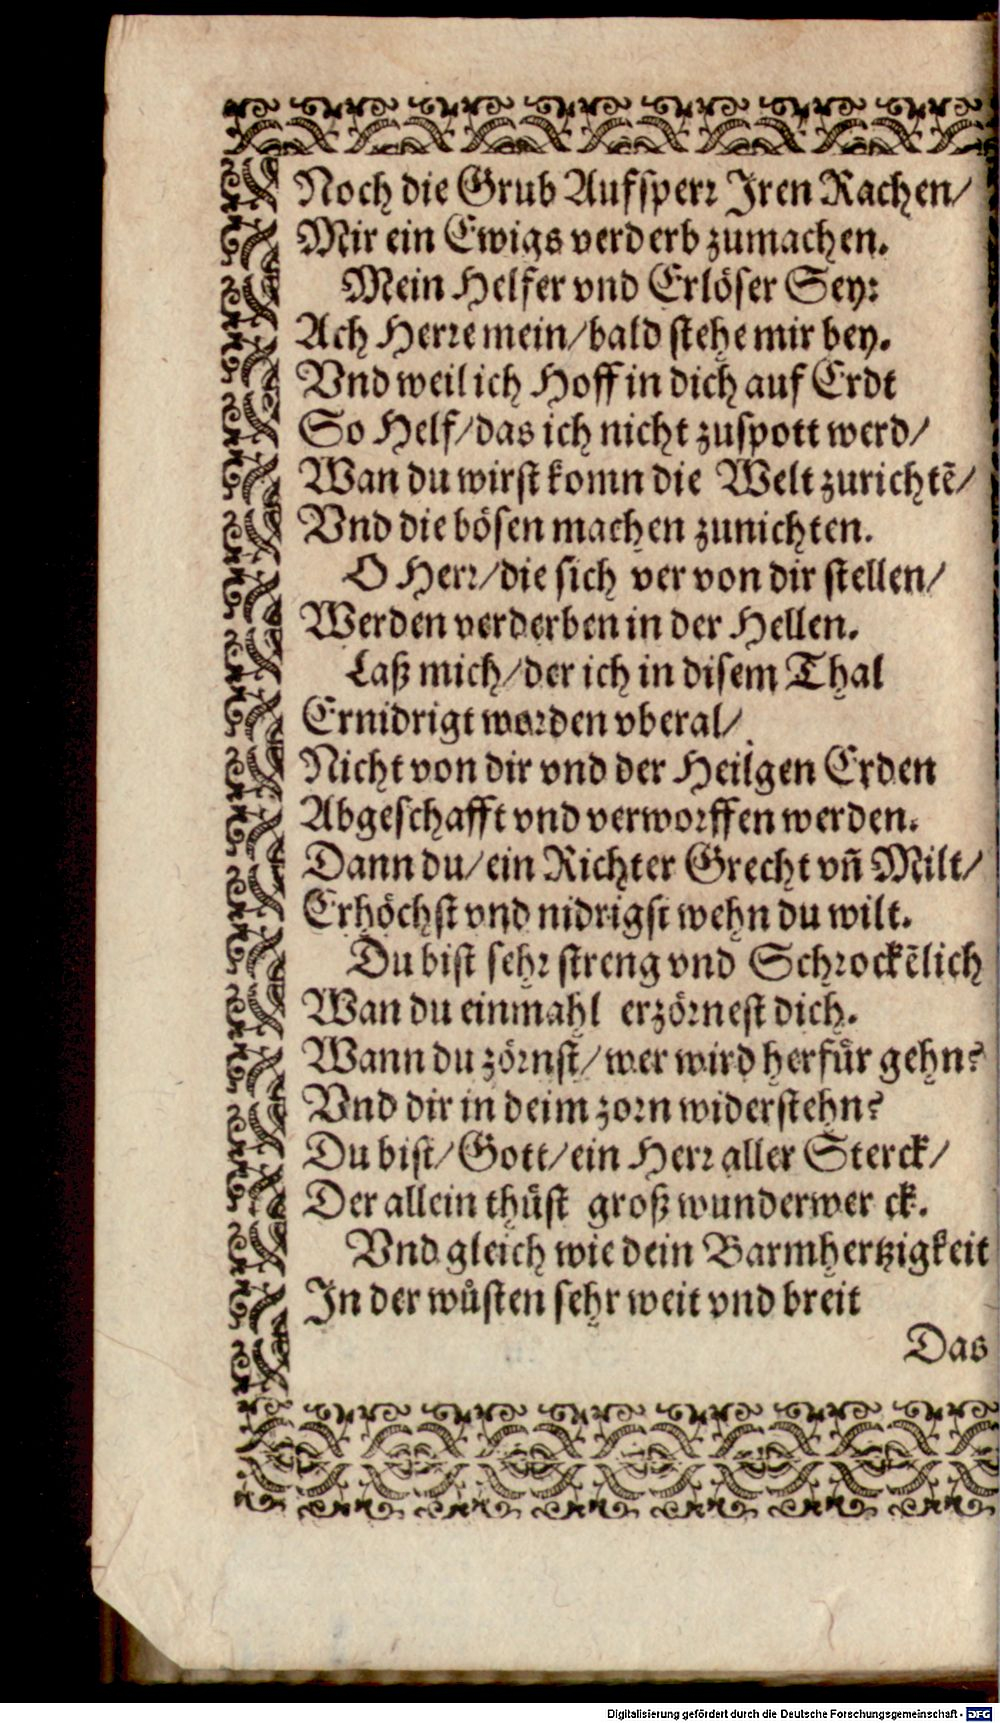 Noch die Grub Aufsperr Iren Rachen/
Mir ein Ewigs verderb zumachen.
Mein Helfer vnd Erlöser Sey:
Ach Herre mein/bald stehe mir bey.
Vnd weil ich Hoff in dich auf Erdt
So Helf/das ich nicht zuspott werd/
Wan du wirst komn die Welt zurichtẽ/
Vnd die bösen machen zunichten.
O Herr/die sich ver von dir stellen/
Werden verderben in der Hellen.
Laß mich/der ich in disem Thal
Ernidrigt worden vberal/
Nicht von dir vnd der Heilgen Erden
Abgeschafft vnd verworffen werden.
Dann du/ein Richter Grecht vñ Milt/
Erhöchst vnd nidrigst wehn du wilt.
Du bist sehr streng vnd Schrockẽlich
Wan du einmahl erzörnest dich.
Wann du zörnst/wer wird herfuͤr gehn?
Vnd dir in deim zorn widerstehn?
Du bist/Gott/ein Herr aller Sterck/
Der allein thuͤst groß wunderwer ck.
Vnd gleich wie dein Barmhertzigkeit
In der wuͤsten sehr weit vnd breit
Das
Digitalisierung gefördert durch die Deutsche Forschungsgemeinschaft - DFG